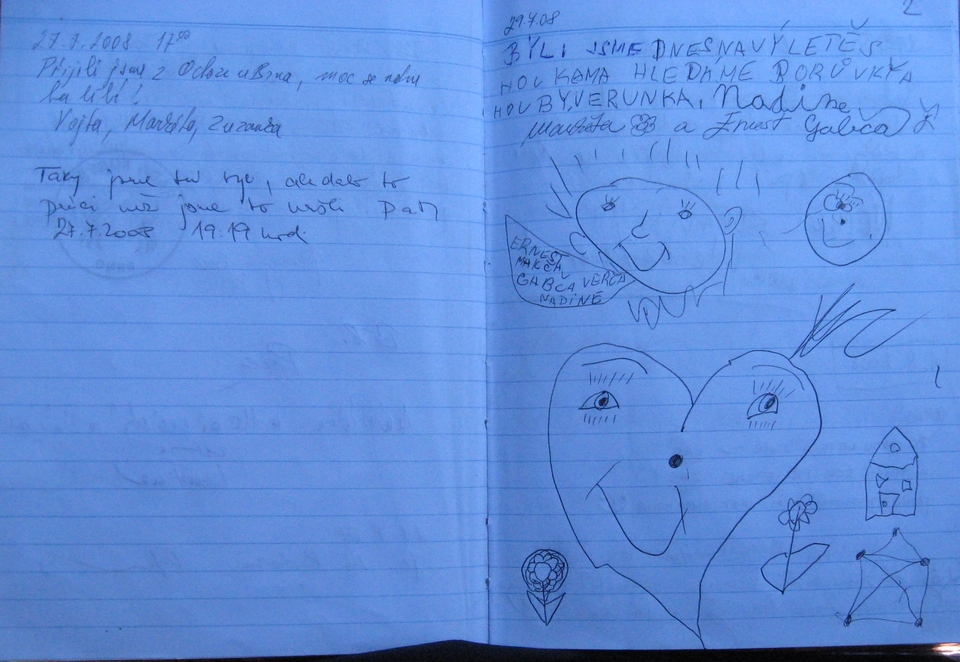 27.7.2008 17⁰⁰
Přijeli jsme z moc se nám
líbí!
Vojta, Markéta, Zuzanka
Taky jsme tu byli, ale dalo to
práci než jsme to našli
27.7.2008 19.19 hodi
2
29.7.08
BYLI JSME DNES NA VÝLETĚ S
HOUKAMA HLEDÁME BORŮVKY A
HOUBY. VERUNKA, Nadine
Markéta a Ernest Gabča
ERNEST
MAKČA
GABČA VERČA
NADINE